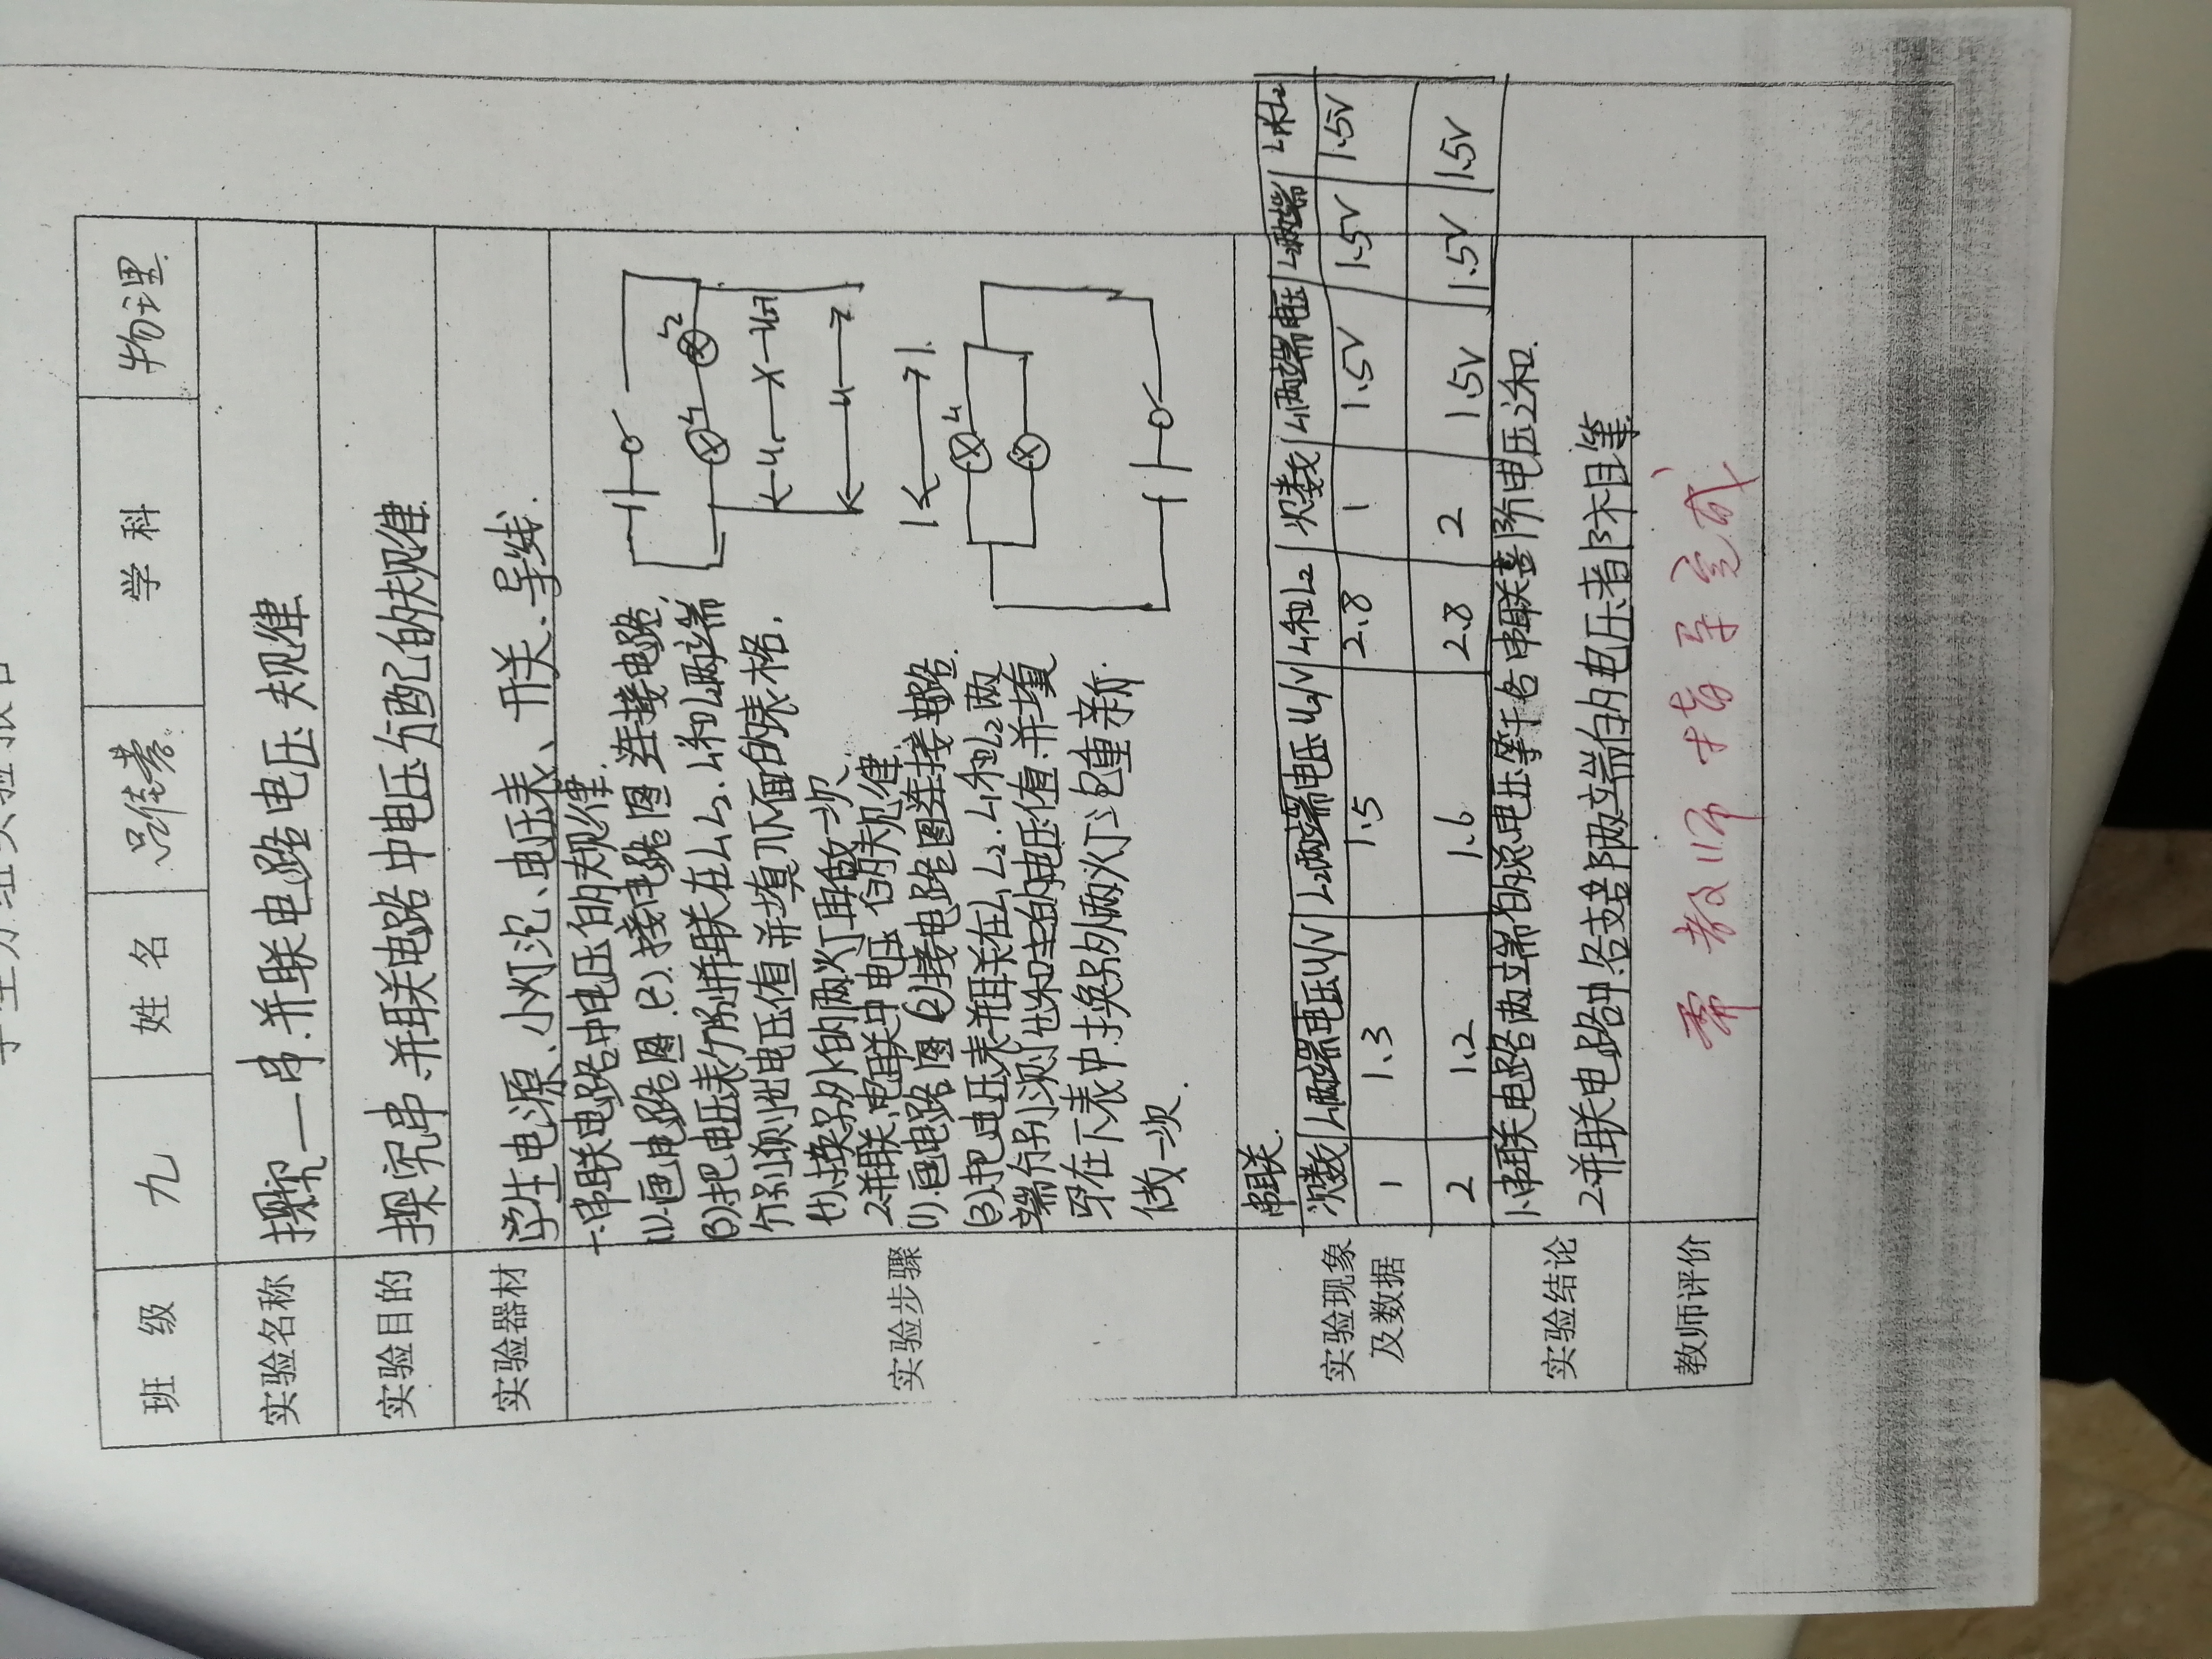 学生分组实验报告
班 级 九 姓 名 学 科 物理
实验名称 探究一串.并联电路电压规律
实验目的 探究串.并联电路中电压分配的规律
实验器材 学生电源、小灯泡、电压表、开关、导线.
实验步骤
一.串联电路中电压的规律.
(1).画电路图.(2).接电路图连接电路.
(3).把电压表分别并联在L₁ L₂. L₁和L₂两端
分别测出电压值并填入下面的表格.
(4).换另外的两灯再做一次
2.并联电联中电压的规律
(1).画电路图(2)接电路图连接电路.
(3).把电压表并联在L₁ L₂. L₁和L₂两
在下表中.换另外两灯泡重新
做一次.
L₁ L₂
U₁ U
实验现象
及数据
串联.
次数 L₁两端电压U₁/V L₂两端电压U₂/V L₁和L₂ 次数 L₁两端电压 L₂两端 L₁和L₂
1 1.3 1.5 2.8 1 1.5V 1.5V 1.5V
2 1.2 1.6 2.8 2 1.5V 1.5V 1.5V
实验结论
1.串联电路两端的总电压等于各串联部分电压之和.
2.并联电路中.各支路两端的电压都相等
教师评价 需教师指导完成